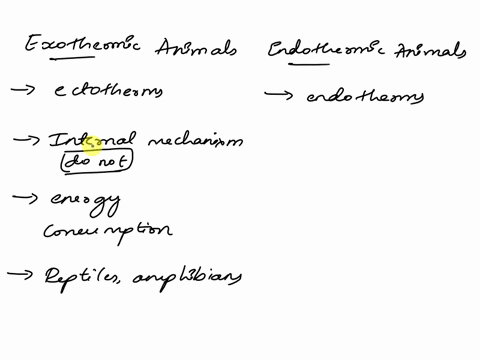 Exothermic Animals
→ ectotherms
→ Internal mechanism
do not
→ energy
consumption
→ Reptiles, amphibians
Endothermic Animals
→ endotherms